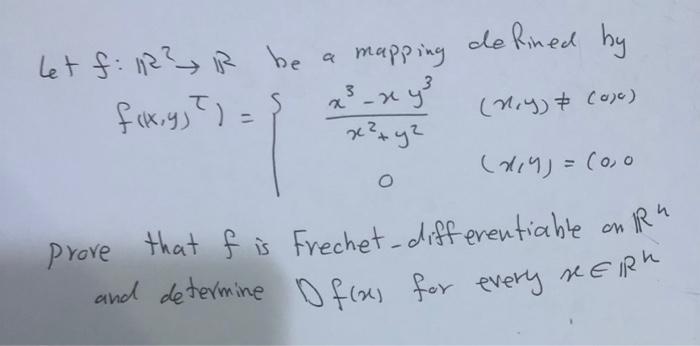 Let f: ℝ² → ℝ be a mapping defined by
f(x,y)ᵀ) = { x³ - x y³ / x² + y² (x,y) ≠ (0,0)
0 (x,y) = (0,0
prove that f is Frechet-differentiable on ℝⁿ
and determine Df(x) for every x ∈ ℝⁿ